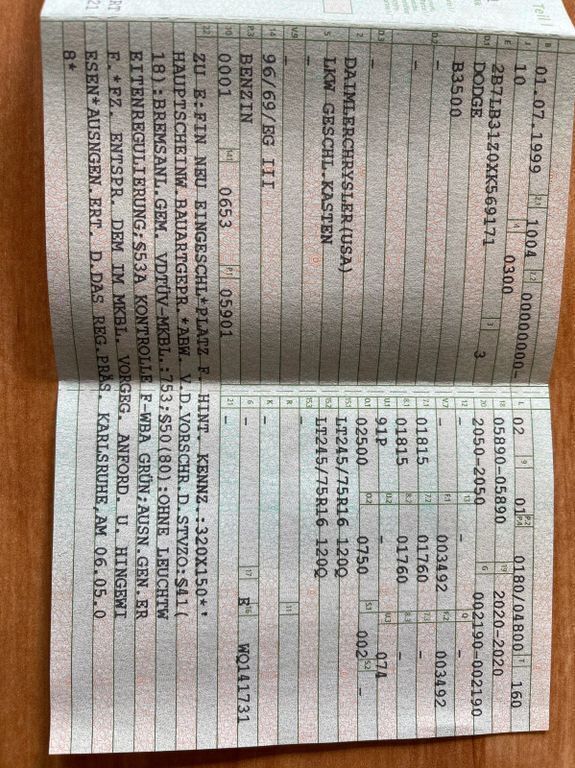 Teil I
B 01.07.1999 2.1 1004 2.2 00000000-
J 10 4 0300
E 2B7LB31Z0XK569171 3 3
D.1 DODGE
B3500
D.2 -
-
D.3 -
2 DAIMLERCHRYSLER(USA)
5 LKW GESCHL.KASTEN
-
V.9 -
14 96/69/EG III
P.3 BENZIN
10 0001 14.1 0653 P.1 05901
22 ZU E:FIN NEU EINGESCHL*PLATZ F. HINT. KENNZ.:320X150*'
HAUPTSCHEINW.BAUARTGEPR.*ABW. V.D.VORSCHR.D.STVZO:§41(
18):BREMSANL.GEM. VDTÜV-MKBL.:753;§50(80):OHNE LEUCHTW
EITENREGULIERUNG;§53A KONTROLLE F-WBA GRÜN;AUSN.GEN.ER
F.*FZ. ENTSPR. DEM IM MKBL. VORGEG. ANFORD. U. HINGEWI
ESEN*AUSNGEN.ERT. D.DAS REG.PRÄS. KARLSRUHE,AM 06.05.0
8*
L 02 9 01 P.2 P.4 0180/04800 T 160
18 05890-05890 19 2020-2020
20 2050-2050 G 002190-002190
12 - 13 - Q -
V.7 - F.1 003492 F.2 003492
7.1 01815 7.2 01760 7.3 -
8.1 01815 8.2 01760 8.3 -
U.1 91P U.2 - U.3 074
O.1 02500 O.2 0750 S.1 002 S.2 -
15.1 LT245/75R16 120Q
15.2 LT245/75R16 120Q
15.3 -
R - 11 -
K -
6 - 17 E 16 WQ141731
21 -